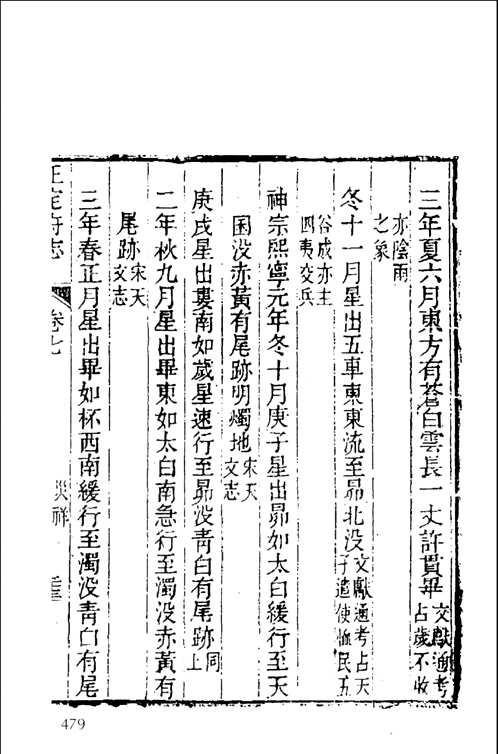 三年夏六月東方有蒼白雲長一丈許貫畢文獻通考占歲不收
亦陰雨之象
冬十一月星出五車東東流至昴北没文獻通考占天子遣使恤民五
谷成亦主四夷交兵
神宗熙寧元年冬十月庚子星出昴如太白緩行至天
囷没赤黃有尾跡明燭地宋天文志
庚戌星出婁南如歲星速行至昴没靑白有尾跡同上
二年秋九月星出畢東如太白南急行至濁没赤黃有
尾跡宋天文志
三年春正月星出畢如杯西南緩行至濁没靑白有尾
正定府志 卷七 災祥
479